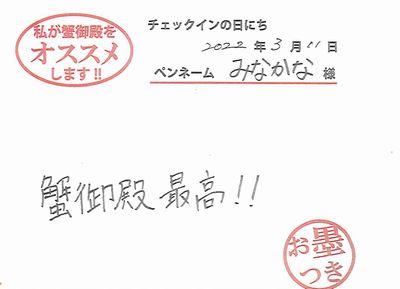 私が蟹御殿を
オススメ
します!!
チェックインの日にち
2022年3月11日
ペンネーム みなかな 様
蟹御殿 最高!!
お墨
つき